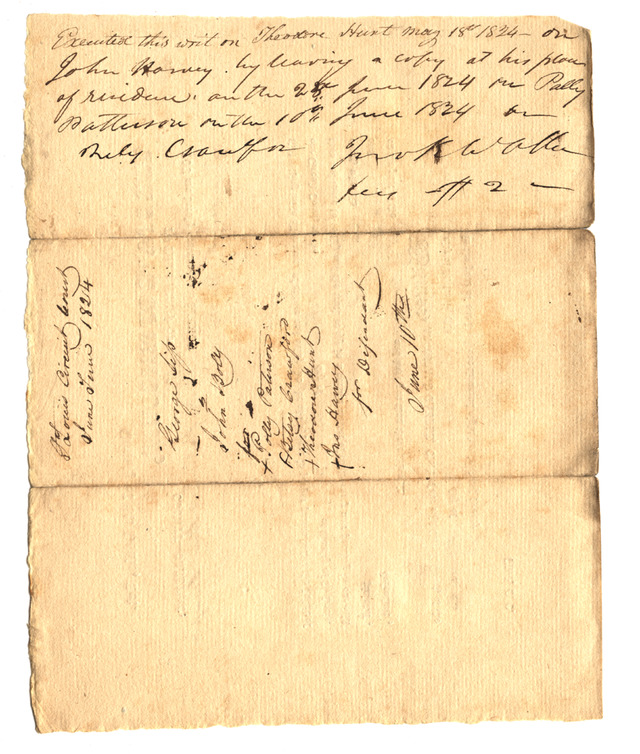 Executed this writ on Theodore Hunt May 18th 1824 – on
John Harvey by leaving a copy at his place
of residence on the 2d June 1824 on Polly
Patterson on the 10th June 1824 on
Betsy Crawfor Jno K Walker
fees $ 2 –
St Louis Circuit Court
June Term 1824
George Sip
vs
John Boly
for
+ Polly Paterson
+ Betsy Crawford
+ Theodore Hunt
+ Jno Harvey
for Defendant
June 10th